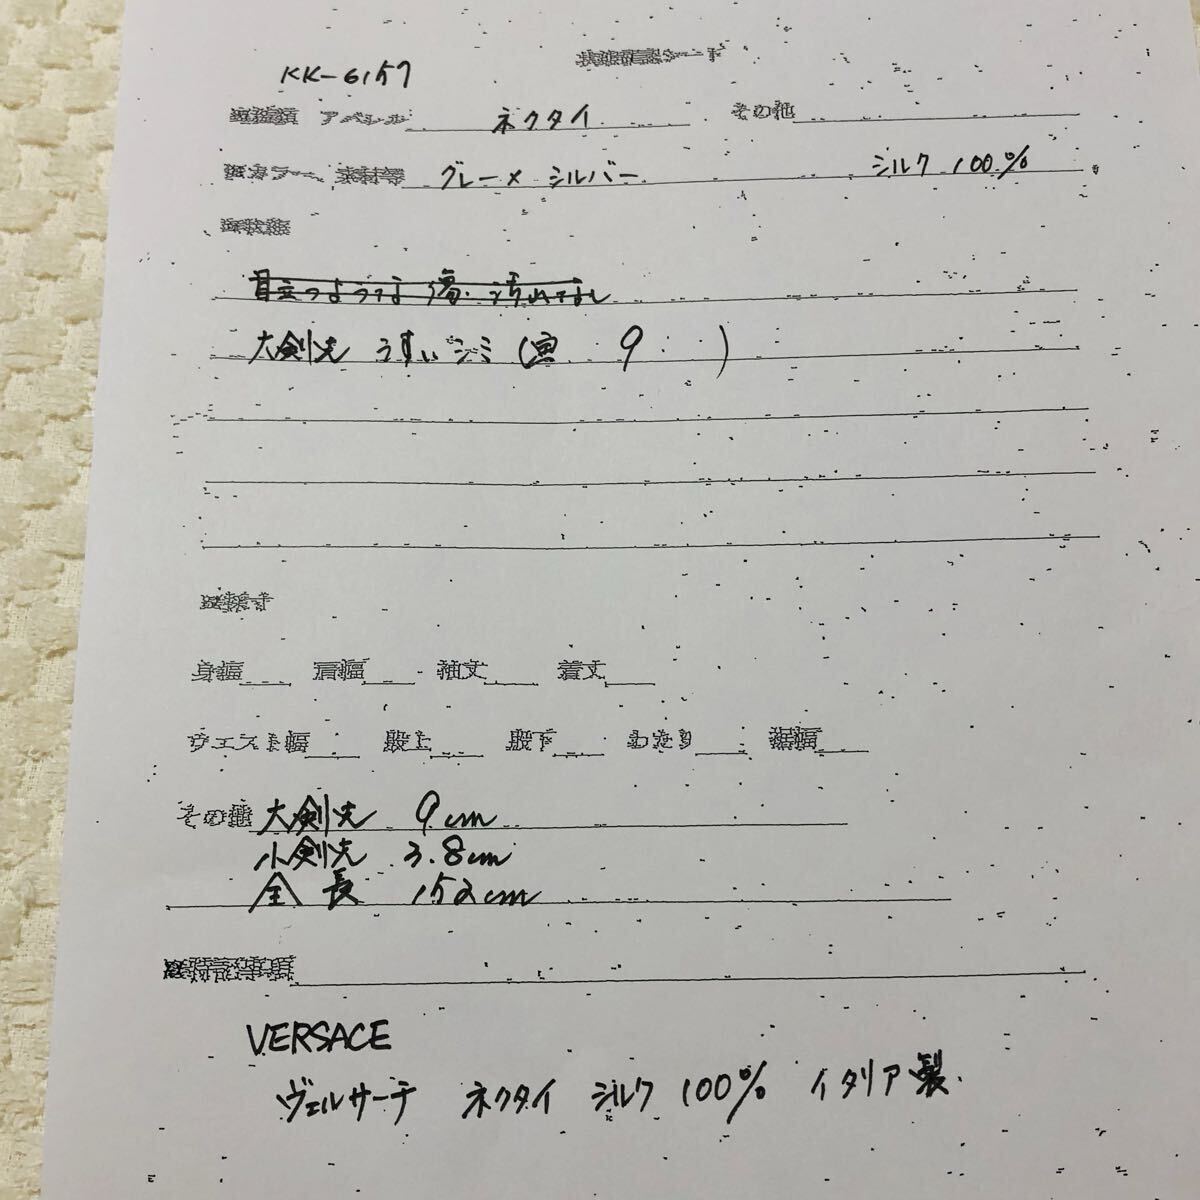 KK-6157
アパレル ネクタイ その他
カラー、素材等 グレー× シルバー シルク 100%
目立つような傷・汚れなし
大剣先 うすいシミ ( 9 )
身幅 肩幅 袖丈 着丈
ウエスト幅 股上 股下 わたり 裾幅
その他 大剣先 9cm
小剣先 3.8cm
全長 152cm
特記事項
VERSACE
ヴェルサーチ ネクタイ シルク 100% イタリア製.